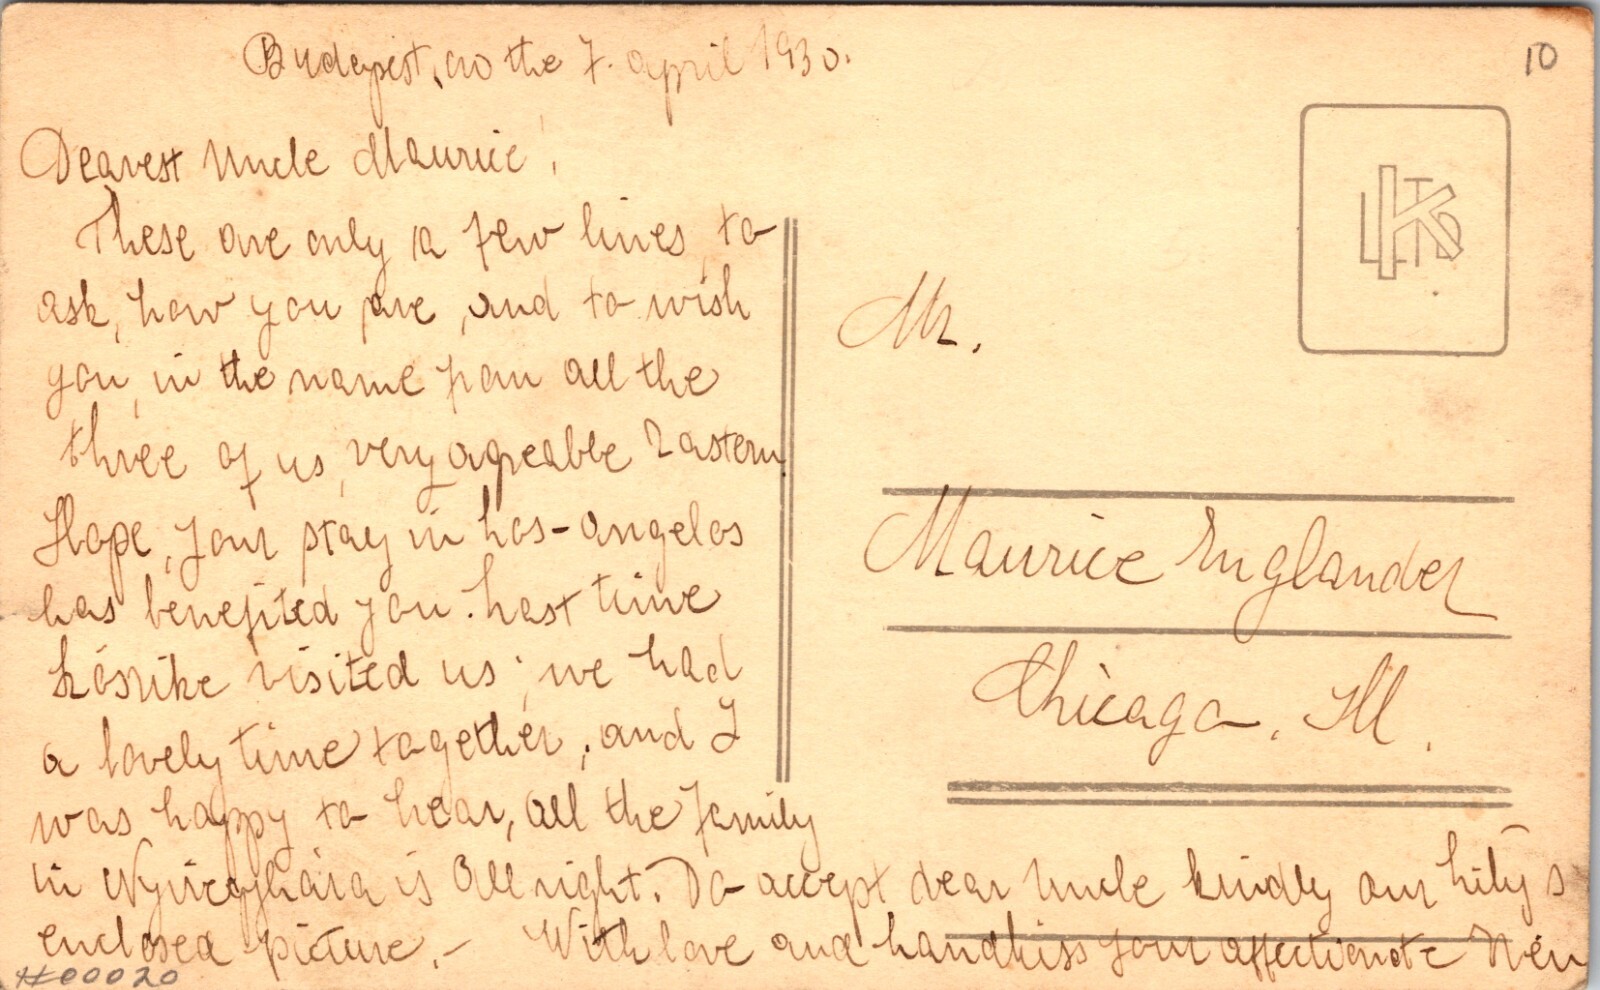 10
Budapest, on the 7. april 1930.
Dearest Uncle Maurice,
These are only a few lines, to
ask, how you are, and to wish
you, in the name from all the
three of us, very agreable Eastern.
Hope, your stay in Los-Angelos
has benefited you. Last time
visited us; we had
a lovely time together, and I
was happy to hear, all the family
in Nyiregyháza is All right. Do accept dear Uncle kindly our Lily's
enclosed picture. - With love and handkiss your affectionate
Mr.
Maurice Englander
Chicago, Ill.
#00020